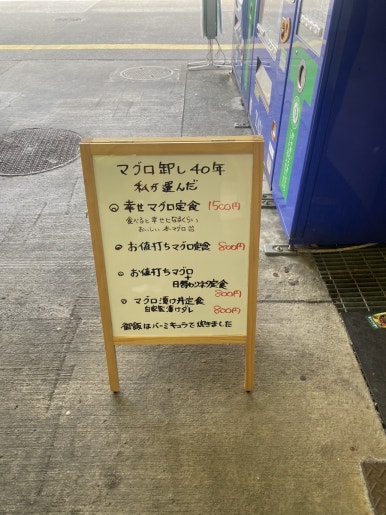 マグロ卸し40年
私が選んだ
幸せマグロ定食 1500円
食べると幸せになるくらい
おいしい本マグロ
お値打ちマグロ定食 800円
お値打ちマグロ
+
日替わりネタ定食
800円
マグロ漬け丼定食
自家製漬けダレ 800円
御飯はバーミキュラで炊きました